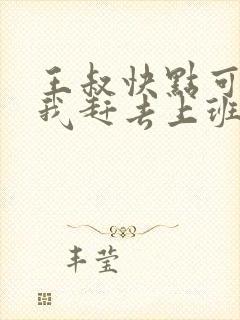 王叔快點可
我赶去上班
丰莹